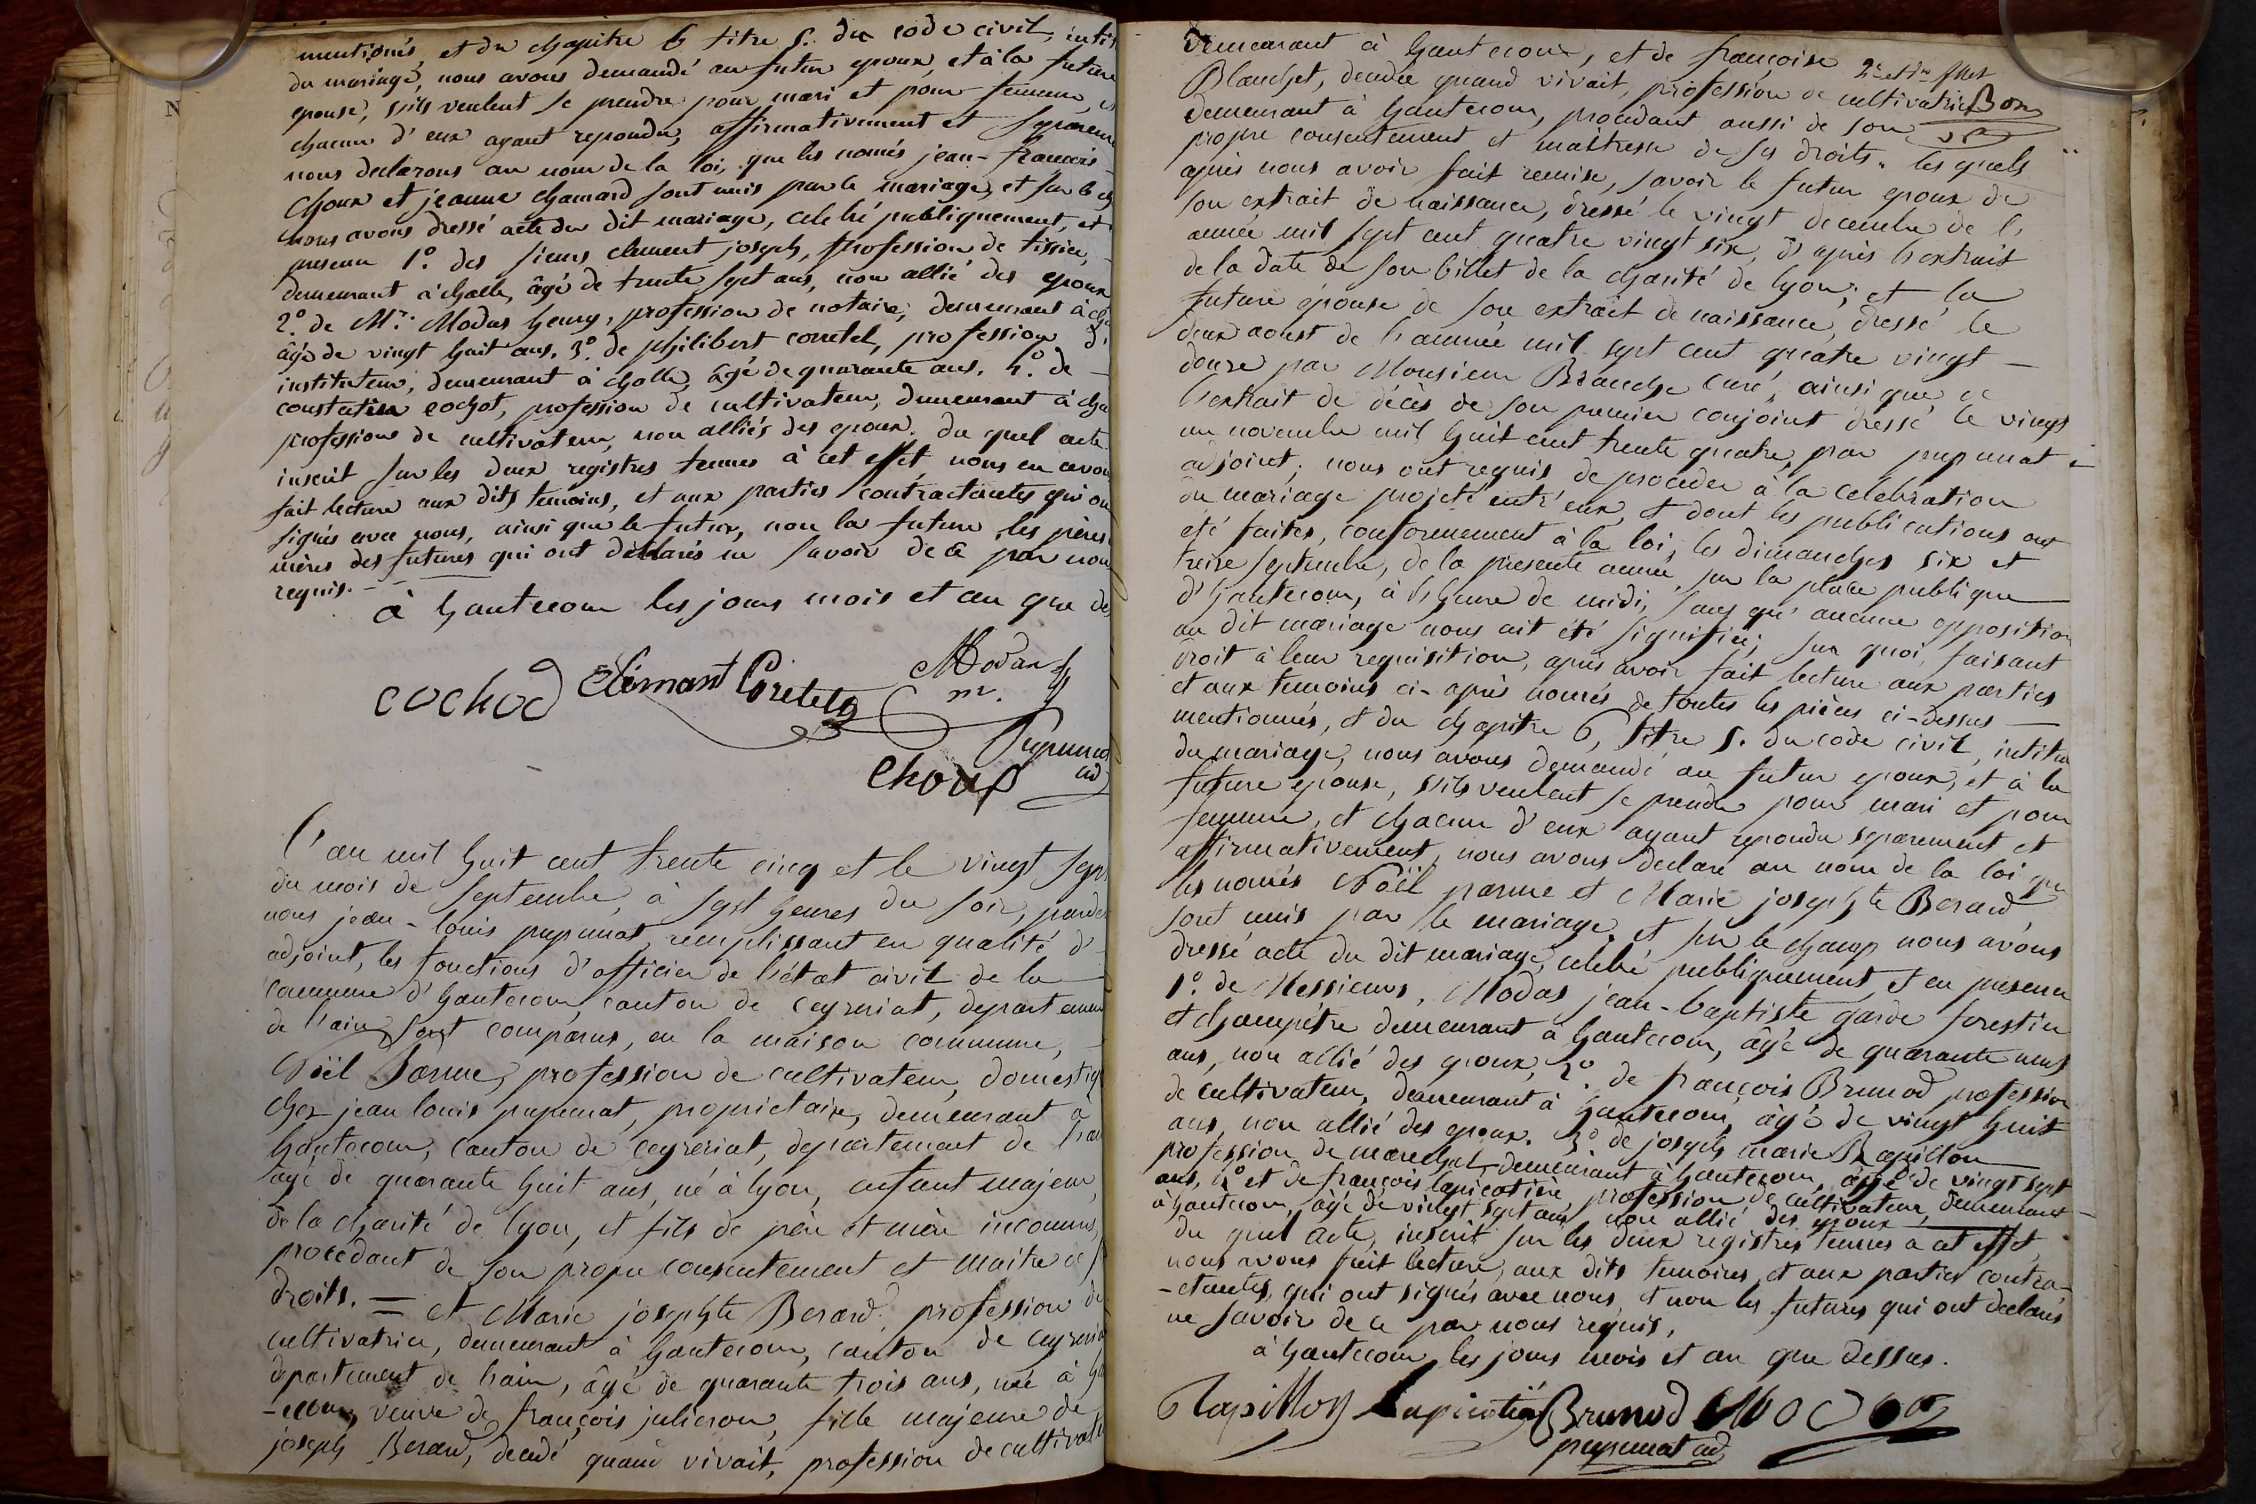 mentionnés, et du chapitre 6 titre 5. du code civil, intit
du mariage, nous avons demandé au futur epoux, et à la future
epouse, s'ils veulent se prendre pour mari et pour femme, et
chacun d'eux ayant repondu, affirmativement et separem
nous declarons au nom de la loi, que les només jean-françois
choux et jeanne chamard sont unis par le mariage, et sur le ch
nous avons dressé acte du dit mariage, celebré publiquement, et
presence 1º. des sieurs clement joseph, profession de tissier,
demeurant à challe, âgé de trente sept ans, non allié des epoux
2º. de Mr. Modas henry, profession de notaire, demeurant à cha
âgé de vingt huit ans. 3º. de philibert corretel, profession d'
instituteur, demeurant à challe, âgé de quarante ans. 4º. de
constatin cochot, profession de cultivateur, demeurant à cha
profession de cultivateur, non alliés des epoux. du quel acte
inscrit sur les deux registres tennus à cet effet, nous en avons
fait lecture aux dits temoins, et aux parties contractantes qui on
signés avec nous, ainsi que le futur, non la future, les pères
mères des futures qui ont déclarés ne savoir de ce par nou
requis. —
à hautecour les jours mois et an que de
Modas
cochod Clémant Coretel nre.
Pupunat
choux ad
L'an mil huit cent trente cinq et le vingt sept
du mois de septembre, à sept heures du soir, pardev
nous jean-louis pupunat, remplissant en qualité d'
adjoint, les fonctions d'officier de l'état civil de la
commune d'hautecour, canton de ceyzeriat, departement
de l'ain, sont comparus, en la maison commune,
Noël Parme, profession de cultivateur, domestiq
chez jean louis pupunat, proprietaire, demeurant à
hautecour, canton de ceyzeriat, departement de l'ain
âgé de quarante huit ans, né à lyon, enfant majeur,
de la charité de lyon, et fils de père et mère inconnus,
procedant de son propre consentement et maitre de s
droits. = et Marie josephte Berard, profession de
cultivatrice, demeurant à hautecour, canton de ceyzeria
departement de l'ain, âgé de quarante trois ans, née à hau
-tecour, veuve de françois julieron, fille majeure de
joseph Berard, decedé quand vivait, profession de cultivate
demeurant à hautecour, et de françoise
Blanchet, decedée quand vivait, profession de cultivatrice
demeurant à hautecour, procedant aussi de son
propre consentement et maitresse de ses droits. les quels
après nous avoir fait remise, savoir le futur epoux de
son extrait de naissance, dressé le vingt decembre de l'
année mil sept cent quatre vingt six, d'après l'extrait
de la date de son billet de la charité de lyon; et la
future épouse de son extrait de naissance, dressé le
deux aoust de l'année mil sept cent quatre vingt —
douze par Monsieur Branche curé, ainsi que de
l'extrait de décès de son premier conjoint dressé le vingt
un novembre mil huit cent trente quatre, par pupunat
adjoint; nous ont requis de proceder à la celebration
du mariage projeté entr'eux, et dont les publications ont
été faites, conformement à la loi, les dimanches six et
treize septembre, de la presente année, sur la place publique
d'hautecour, à l'heure de midi, sans qu'aucune opposition
au dit mariage nous ait été signifiée; sur quoi, faisant
droit à leur requisition, après avoir fait lecture aux parties
et aux temoins ci-après només de toutes les pièces ci-dessus —
mentionnés, et du chapitre 6, titre 5. du code civil, intitu
du mariage, nous avons demandé au futur epoux, et à la
future epouse, s'ils veulent se prendre pour mari et pour
femme, et chacun d'eux ayant repondu separement et
affirmativement, nous avons declaré au nom de la loi que
les només Noël parme et Marie josephte Berard
sont unis par le mariage, et sur le champ nous avons
dressé acte du dit mariage, celebré publiquement, et en presence
1º. de Messieurs, Modas jean-baptiste garde forestier
et champêtre demeurant à hautecour, âgé de quarante neuf
ans, non allié des epoux, 2º. de françois Brunod profession
de cultivateur, demeurant à hautecour, âgé de vingt huit
ans, non allié des epoux. 3º de joseph marie Rapillon
profession de marechal, demeurant à hautecour, âgé de vingt sept
ans, 4º et de françois lapicotière, profession de cultivateur, demeurant
à hautecour, âgé de vingt sept ans, non allié des epoux
du quel acte, inscrit sur les deux registres tennus à cet effet,
nous avons fait lecture, aux dits temoins, et aux parties contra-
-ctantes, qui ont signés avec nous, et non les futures qui ont declarés
ne savoir de ce par nous requis.
à hautecour, les jours mois et an que dessus.
Rapillon Lapicotière Brunod Modas
pupunat ad